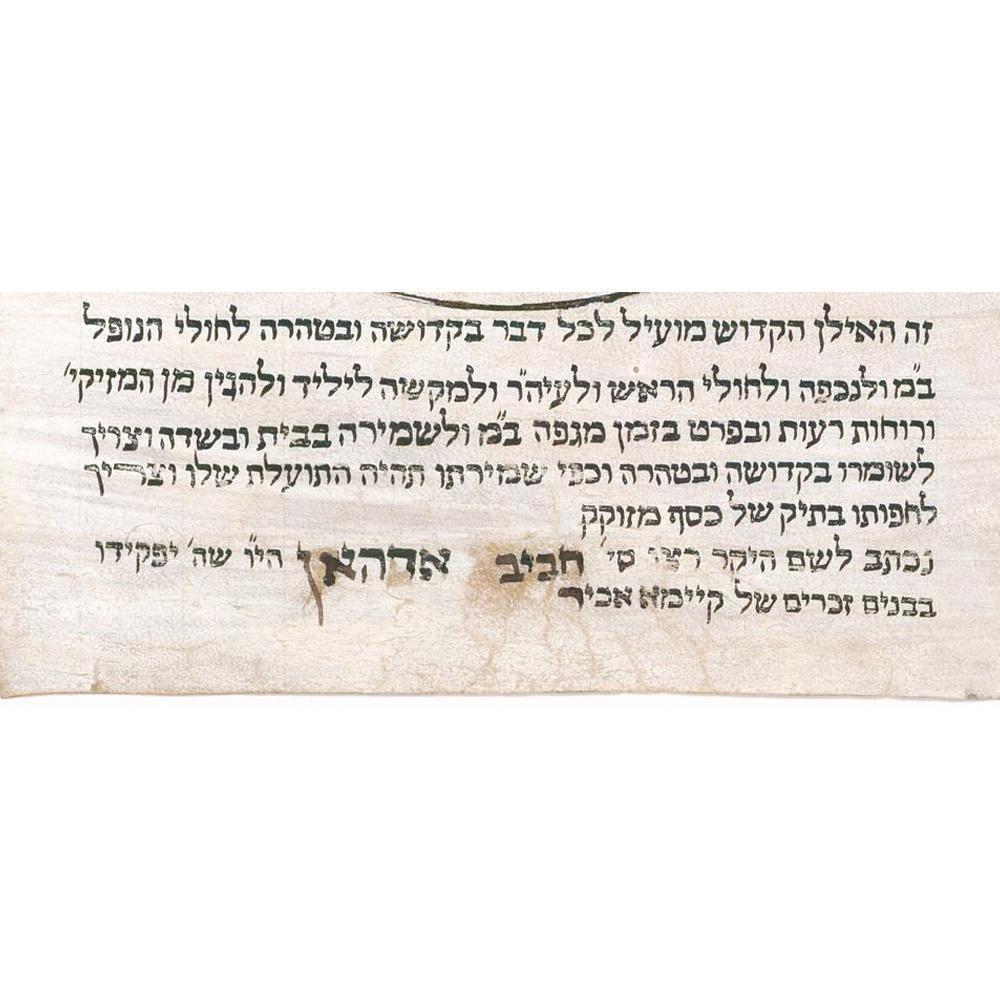 זה האילן הקדוש מועיל לכל דבר בקדושה ובטהרה לחולי הנופל
ב"מ ולנכפה ולחולי הראש ולעיה"ר ולמקשה ליליד ולהנין מן המזיקי'
ורוחות רעות ובפרט בזמן מגפה ב"מ ולשמירה בבית ובשדה וצריך
לשומרו בקדושה ובטהרה וכפי שמירתו תהיה התועלת שלו וצריך
לחפותו בתיק של כסף מזוקק
נכתב לשם היקר חביב אדהאן הי"ו שה' יפקידו
בבנים זכרים של קיימא אכי"ר